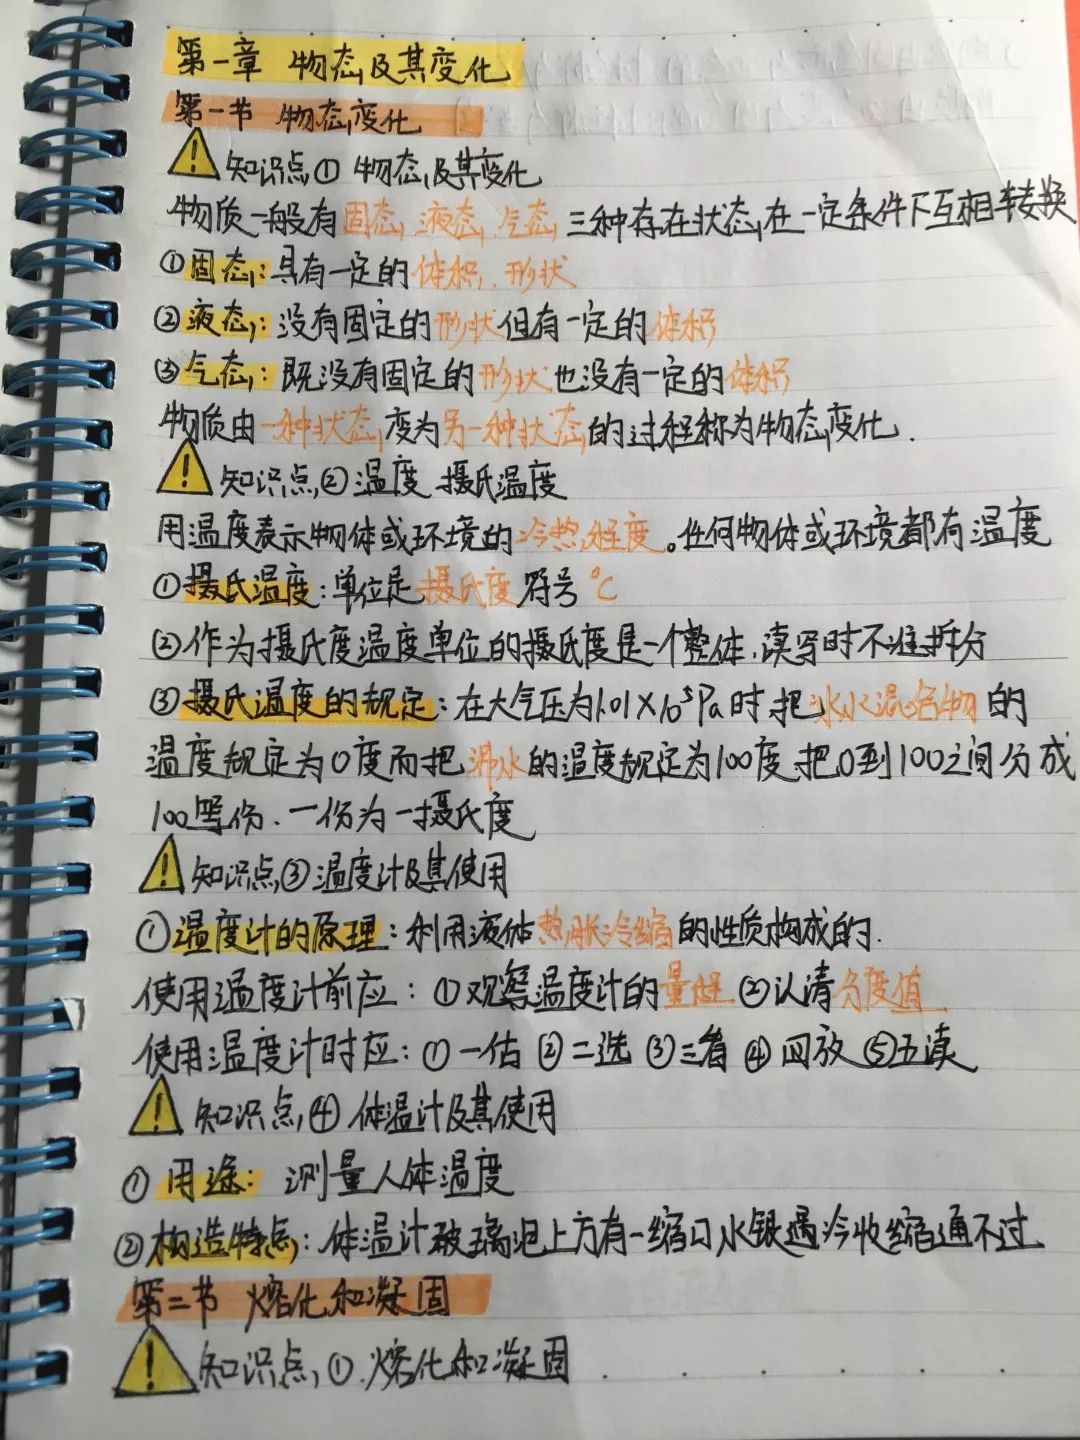 第一章 物态及其变化
第一节 物态变化
知识点① 物态及其变化
物质一般有固态,液态,气态,三种存在状态,在一定条件下互相转换
①固态:具有一定的体积、形状
②液态:没有固定的形状但有一定的体积
③气态:既没有固定的形状也没有一定的体积
物质由一种状态变为另一种状态的过程称为物态变化.
知识点②温度 摄氏温度
用温度表示物体或环境的冷热程度。任何物体或环境都有温度
①摄氏温度:单位是摄氏度 符号℃
②作为摄氏度温度单位的摄氏度是一个整体,读写时不准拆分
③摄氏温度的规定:在大气压为1.01×10⁵Pa时把冰水混合物的
温度规定为0度而把沸水的温度规定为100度把0到100之间分成
100等份.一份为一摄氏度
知识点③温度计及其使用
①温度计的原理:利用液体热胀冷缩的性质构成的.
使用温度计前应:①观察温度计的量程②认清分度值
使用温度计时应:①一估②二选③三看④四放⑤五读
知识点④体温计及其使用
①用途:测量人体温度
②构造特点:体温计玻璃泡上方有一缩口水银遇冷收缩通不过.
第二节 熔化和凝固
知识点①.熔化和凝固